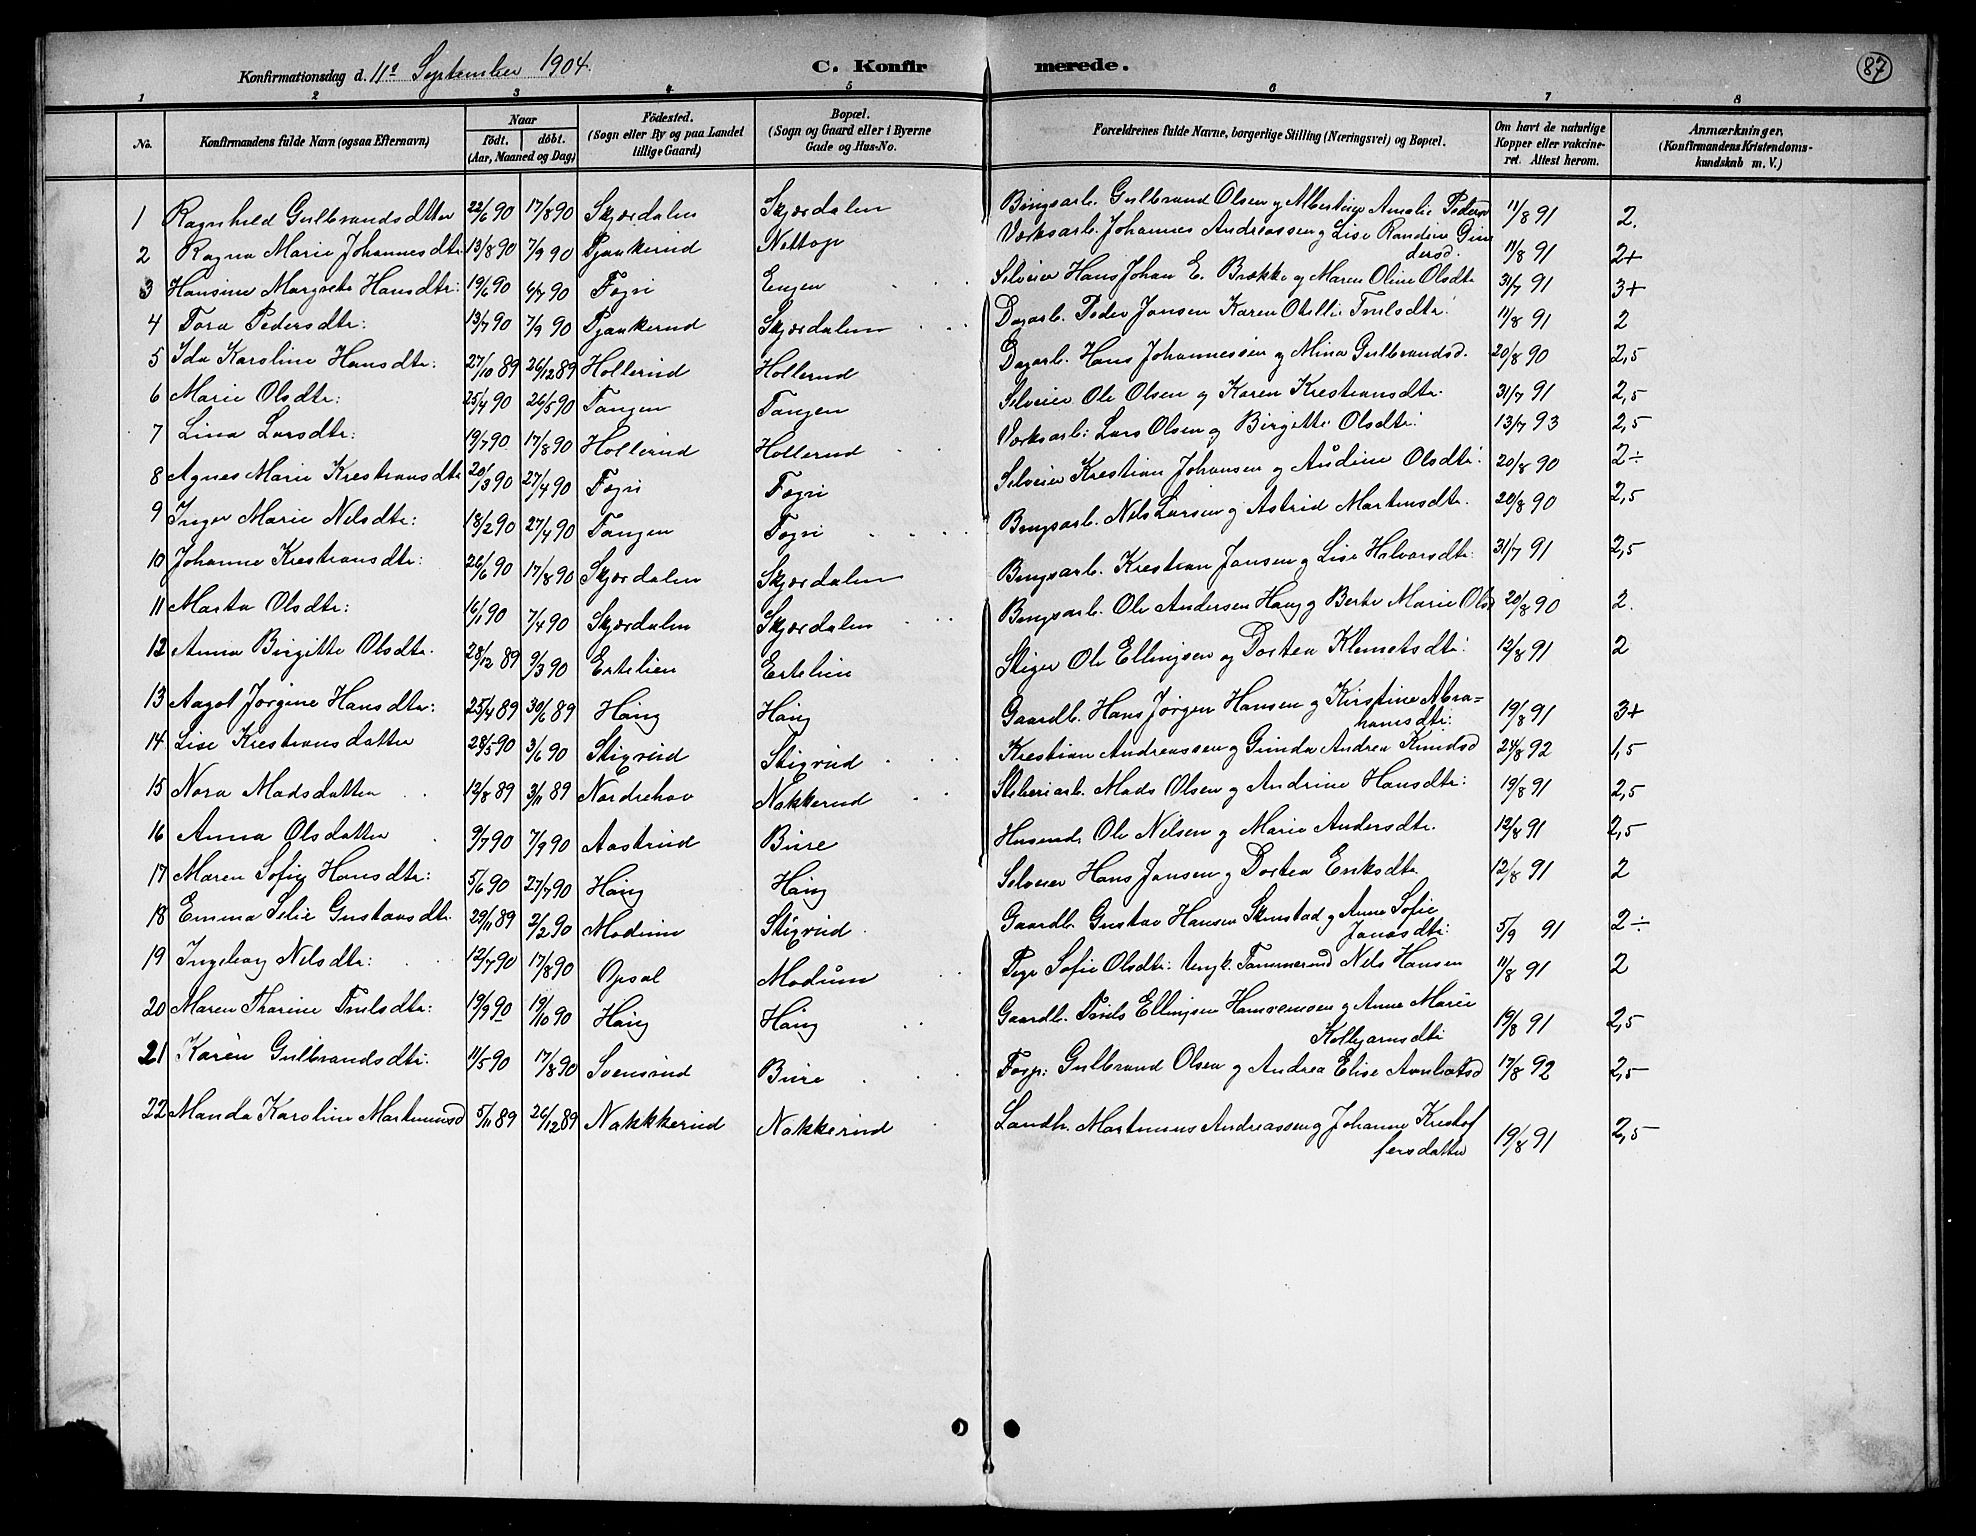 Konfirmationsdag d. 11te September 1904. C. Konfirmerede. 87
1 2 3 4 5 6 7 8
No. Konfirmandens fulde Navn (ogsaa Efternavn) Naar födt. döbt. (Aar, Maaned og Dag) Födested. (Sogn eller By og paa Landet lillige Gaard) Bopæl. (Sogn og Gaard eller i Byerne Gade og Hus-No. Forældrenes fulde Navne, borgerlige Stilling (Næringsvei) og Bopæl. Om havt de naturlige Kopper eller vakcineret. Attest herom. Anmærkninger, (Konfirmandens Kristendomskundskab m. V.)
1 Ragnhild Gulbrandsdtter 22/6 90 17/8 90 Skjærdalen Skjærdalen Gulbrand Olsen og Albertine Amalie Peders 11/8 91 2.
2 Ragna Marie Johannesdtr. 13/8 90 7/9 90 Pjaakerud Nettop Værksarb. Johannes Andreassen og Lise Randine Gundersd. 11/8 91 2+
3 Hansine Margrete Hansdtr: 19/6 90 6/7 90 Fogri Engen Selveier Hans Johan E. Brække og Maren Oline Olsdtr 31/7 91 3+
4 Tora Pedersdtr: 13/7 90 7/9 90 Pjaakerud Skjærdalen Dagarb. Peder Jansen Karen Otellie Truls dtr. 11/8 91 2
5 Ida Karoline Hansdtr: 27/10 89 26/12 89 Hollerud Hollerud Dagarb. Hans Johannessen og Mina Gulbrandsd. 20/8 90 2,5
6 Marie Olsdtr: 25/4 90 26/5 90 Tangen Tangen Selveier Ole Olsen og Karen Krestiansdtr. 31/7 91 2,5
7 Lina Larsdtr: 19/7 90 17/8 90 Hollerud Hollerud Værksarb: Lars Olsen og Birgitte Olsdtr: 13/7 93 2,5
8 Agnes Marie Krestiansdtr 20/3 90 27/4 90 Fogri Fogri Selveier Krestian Johansen og Audine Olsdtr: 20/8 90 2÷
9 Inger Marie Nilsdtr: 18/2 90 27/4 90 Tangen Fogri Nils Larsen og Astrid Martinsdtr. 20/8 90 2,5
10 Johanne Krestiansdtr: 26/6 90 17/8 90 Skjærdalen Skjærdalen Krestian Jansen og Lise Halvorsdtr: 31/7 91 2,5
11 Marta Olsdtr: 16/1 90 7/4 90 Skjærdalen Skjærdalen Ole Andersen Haug og Berte Marie Olsd 20/8 90 2.
12 Anna Birgitte Olsdtr. 28/12 89 9/3 90 Ertelien Ertelien Stiger Ole Ellingsen og Dortea Klemetsdtr: 12/8 91 2
13 Aagot Jørgine Hansdtr: 25/4 89 30/6 89 Haug Haug Gaardb. Hans Jørgen Hansen og Kirstine Abrahamsdtr: 19/8 91 3+
14 Lise Krestiansdatter 28/5 90 3/6 90 Stigrud Stigrud Krestian Andreassen og Gunda Andrea Knudsd 24/8 92 1,5
15 Nora Madsdatter 12/8 89 3/11 89 Nordrehov Nakkerud Sliberiarb. Mads Olsen og Andrine Hansdtr: 19/8 91 2,5
16 Anna Olsdatter 9/7 90 7/9 90 Aastrud Bure Husmd. Ole Nilsen og Marie Andersdtr. 12/8 91 2,5
17 Maren Sofie Hansdtr: 5/6 90 27/7 90 Haug Haug Selveier Hans Jansen og Dortea Eriksdtr 12/8 91 2
18 Emma Selie Gustavsdtr. 29/11 89 2/2 90 Modum Stigrud Gaardb. Gustav Hansen Skinstad og Anne Sofie Jonasdtr: 5/9 91 2÷
19 Ingeborg Nilsdtr: 12/7 90 17/8 90 Opsal Modum Pige Sofie Olsdtr: Ungk. Tømmerud Nils Hansen 11/8 91 2
20 Maren Tharine Trulsdtr: 19/9 90 19/10 90 Haug Haug Gaardb. Truls Ellingsen og Anne Marie Kolbjørnsdtr 19/8 91 2,5
21 Karen Gulbrandsdtr: 11/5 90 17/8 90 Svensrud Bure Forp: Gulbrand Olsen og Andrea Elise 17/8 92 2,5
22 Manda Karoline Martinusd 5/11 89 26/12 89 Nakkkerud Nakkerud Landh. Martinus Andreassen og Johanne Krestoffersdatter 19/8 91 2,5